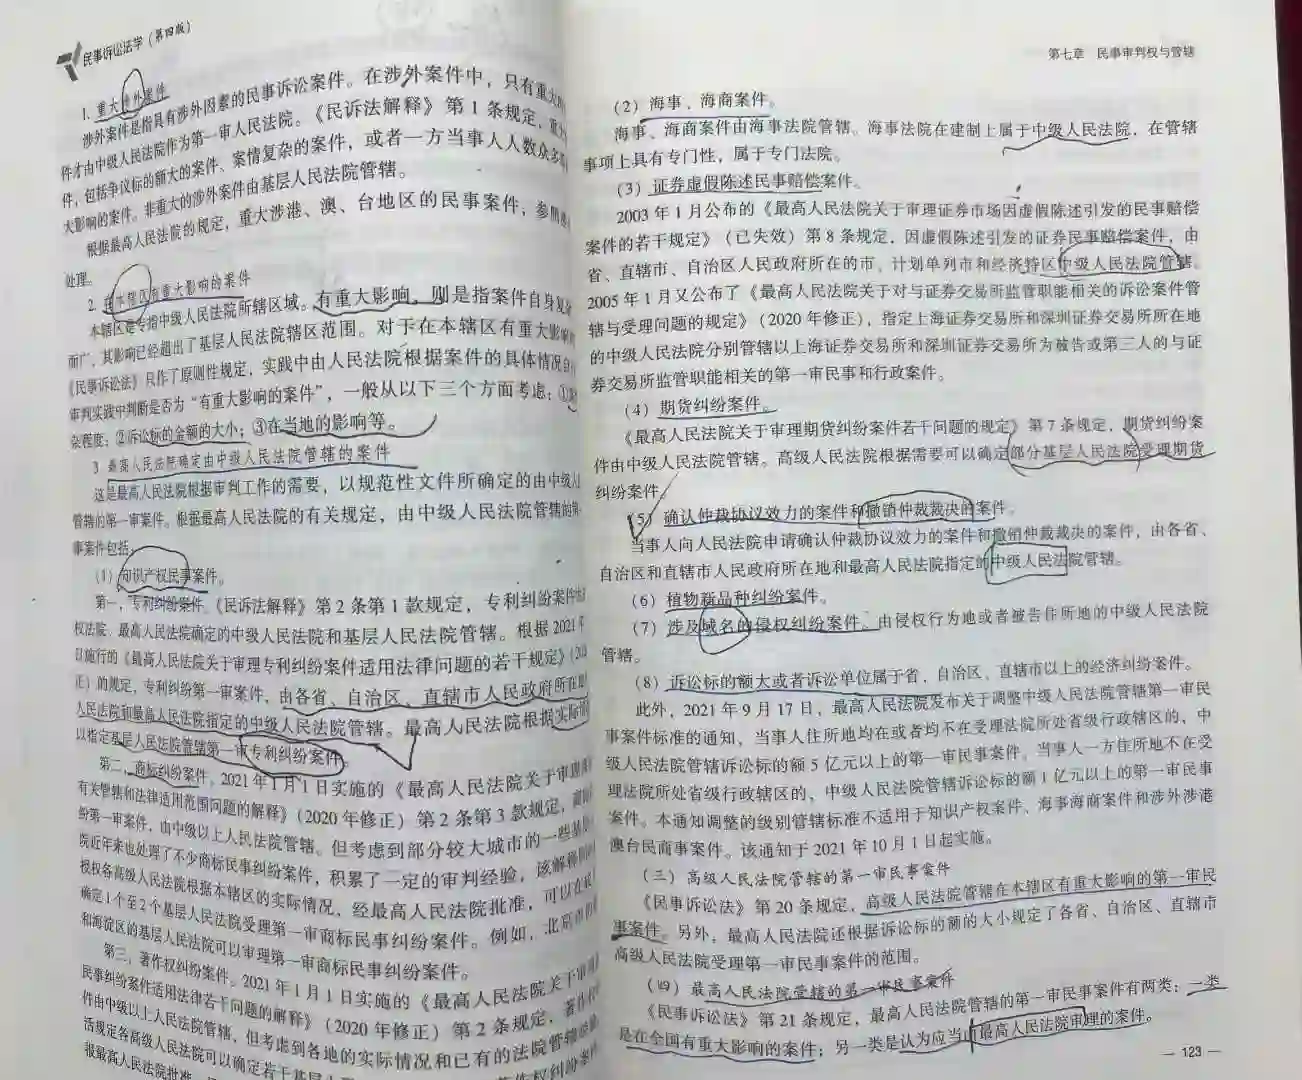 民事诉讼法学（第四版）
1. 重大涉外案件
涉外案件是指具有涉外因素的民事诉讼案件。在涉外案件中，只有重大
件才由中级人民法院作为第一审人民法院。《民诉法解释》第1条规定，重大
件，包括争议标的额大的案件、案情复杂的案件，或者一方当事人人数众多
大影响的案件。非重大的涉外案件由基层人民法院管辖。
根据最高人民法院的规定，重大涉港、澳、台地区的民事案件，参照
处理。
2. 在本辖区有重大影响的案件
本辖区是专指中级人民法院所辖区域。有重大影响，则是指案件自身复杂
而广，其影响已经超出了基层人民法院辖区范围。对于在本辖区有重大影响
《民事诉讼法》只作了原则性规定，实践中由人民法院根据案件的具体情况
审判实践中判断是否为“有重大影响的案件”，一般从以下三个方面考虑：①
杂程度；②诉讼标的金额的大小；③在当地的影响等。
3 最高人民法院确定由中级人民法院管辖的案件
这是最高人民法院根据审判工作的需要，以规范性文件所确定的由中级人
管辖的第一审案件。根据最高人民法院的有关规定，由中级人民法院管辖的第
事案件包括：
（1）知识产权民事案件。
第一，专利纠纷案件。《民诉法解释》第2条第1款规定，专利纠纷案件
权法院、最高人民法院确定的中级人民法院和基层人民法院管辖。根据2021年
日施行的《最高人民法院关于审理专利纠纷案件适用法律问题的若干规定》（20
正）的规定，专利纠纷第一审案件，由各省、自治区、直辖市人民政府所在地
人民法院和最高人民法院指定的中级人民法院管辖。最高人民法院根据实际情
以指定基层人民法院管辖第一审专利纠纷案件。
第二，商标纠纷案件。2021年1月1日实施的《最高人民法院关于审理商
有关管辖和法律适用范围问题的解释》（2020年修正）第2条第3款规定，商标
纷第一审案件，由中级以上人民法院管辖。但考虑到部分较大城市的一些基层
院近年来也处理了不少商标民事纠纷案件，积累了一定的审判经验，该解释同
授权各高级人民法院根据本辖区的实际情况，经最高人民法院批准，可以在
确定1个至2个基层人民法院受理第一审商标民事纠纷案件。例如，北京市
和海淀区的基层人民法院可以审理第一审商标民事纠纷案件。
第三，著作权纠纷案件。2021年1月1日实施的《最高人民法院关于审理
民事纠纷案件适用法律若干问题的解释》（2020年修正）第2条规定，著作权
件由中级以上人民法院管辖，但考虑到各地的实际情况和已有的法院管辖
活规定各高级人民法院可以确定若干基层
报最高人民法院批准
第七章 民事审判权与管辖
（2）海事、海商案件。
海事、海商案件由海事法院管辖。海事法院在建制上属于中级人民法院，在管辖
事项上具有专门性，属于专门法院。
（3）证券虚假陈述民事赔偿案件。
2003年1月公布的《最高人民法院关于审理证券市场因虚假陈述引发的民事赔偿
案件的若干规定》（已失效）第8条规定，因虚假陈述引发的证券民事赔偿案件，由
省、直辖市、自治区人民政府所在的市、计划单列市和经济特区中级人民法院管辖。
2005年1月又公布了《最高人民法院关于对与证券交易所监管职能相关的诉讼案件管
辖与受理问题的规定》（2020年修正），指定上海证券交易所和深圳证券交易所所在地
的中级人民法院分别管辖以上海证券交易所和深圳证券交易所为被告或第三人的与证
券交易所监管职能相关的第一审民事和行政案件。
（4）期货纠纷案件。
《最高人民法院关于审理期货纠纷案件若干问题的规定》第7条规定，期货纠纷案
件由中级人民法院管辖。高级人民法院根据需要可以确定部分基层人民法院受理期货
纠纷案件。
（5）确认仲裁协议效力的案件和撤销仲裁裁决的案件。
当事人向人民法院申请确认仲裁协议效力的案件和撤销仲裁裁决的案件，由各省、
自治区和直辖市人民政府所在地和最高人民法院指定的中级人民法院管辖。
（6）植物新品种纠纷案件。
（7）涉及域名的侵权纠纷案件。由侵权行为地或者被告住所地的中级人民法院
管辖。
（8）诉讼标的额大或者诉讼单位属于省、自治区、直辖市以上的经济纠纷案件。
此外，2021年9月17日，最高人民法院发布关于调整中级人民法院管辖第一审民
事案件标准的通知，当事人住所地均在或者均不在受理法院所处省级行政辖区的，中
级人民法院管辖诉讼标的额5亿元以上的第一审民事案件。当事人一方住所地不在受
理法院所处省级行政辖区的，中级人民法院管辖诉讼标的额1亿元以上的第一审民事
案件。本通知调整的级别管辖标准不适用于知识产权案件、海事海商案件和涉外涉港
澳台民商事案件。该通知于2021年10月1日起实施。
（三）高级人民法院管辖的第一审民事案件
《民事诉讼法》第20条规定，高级人民法院管辖在本辖区有重大影响的第一审民
事案件。另外，最高人民法院还根据诉讼标的额的大小规定了各省、自治区、直辖市
高级人民法院受理第一审民事案件的范围。
（四）最高人民法院管辖的第一审民事案件
《民事诉讼法》第21条规定，最高人民法院管辖的第一审民事案件有两类：一类
是在全国有重大影响的案件；另一类是认为应当由最高人民法院审理的案件。
— 123 —